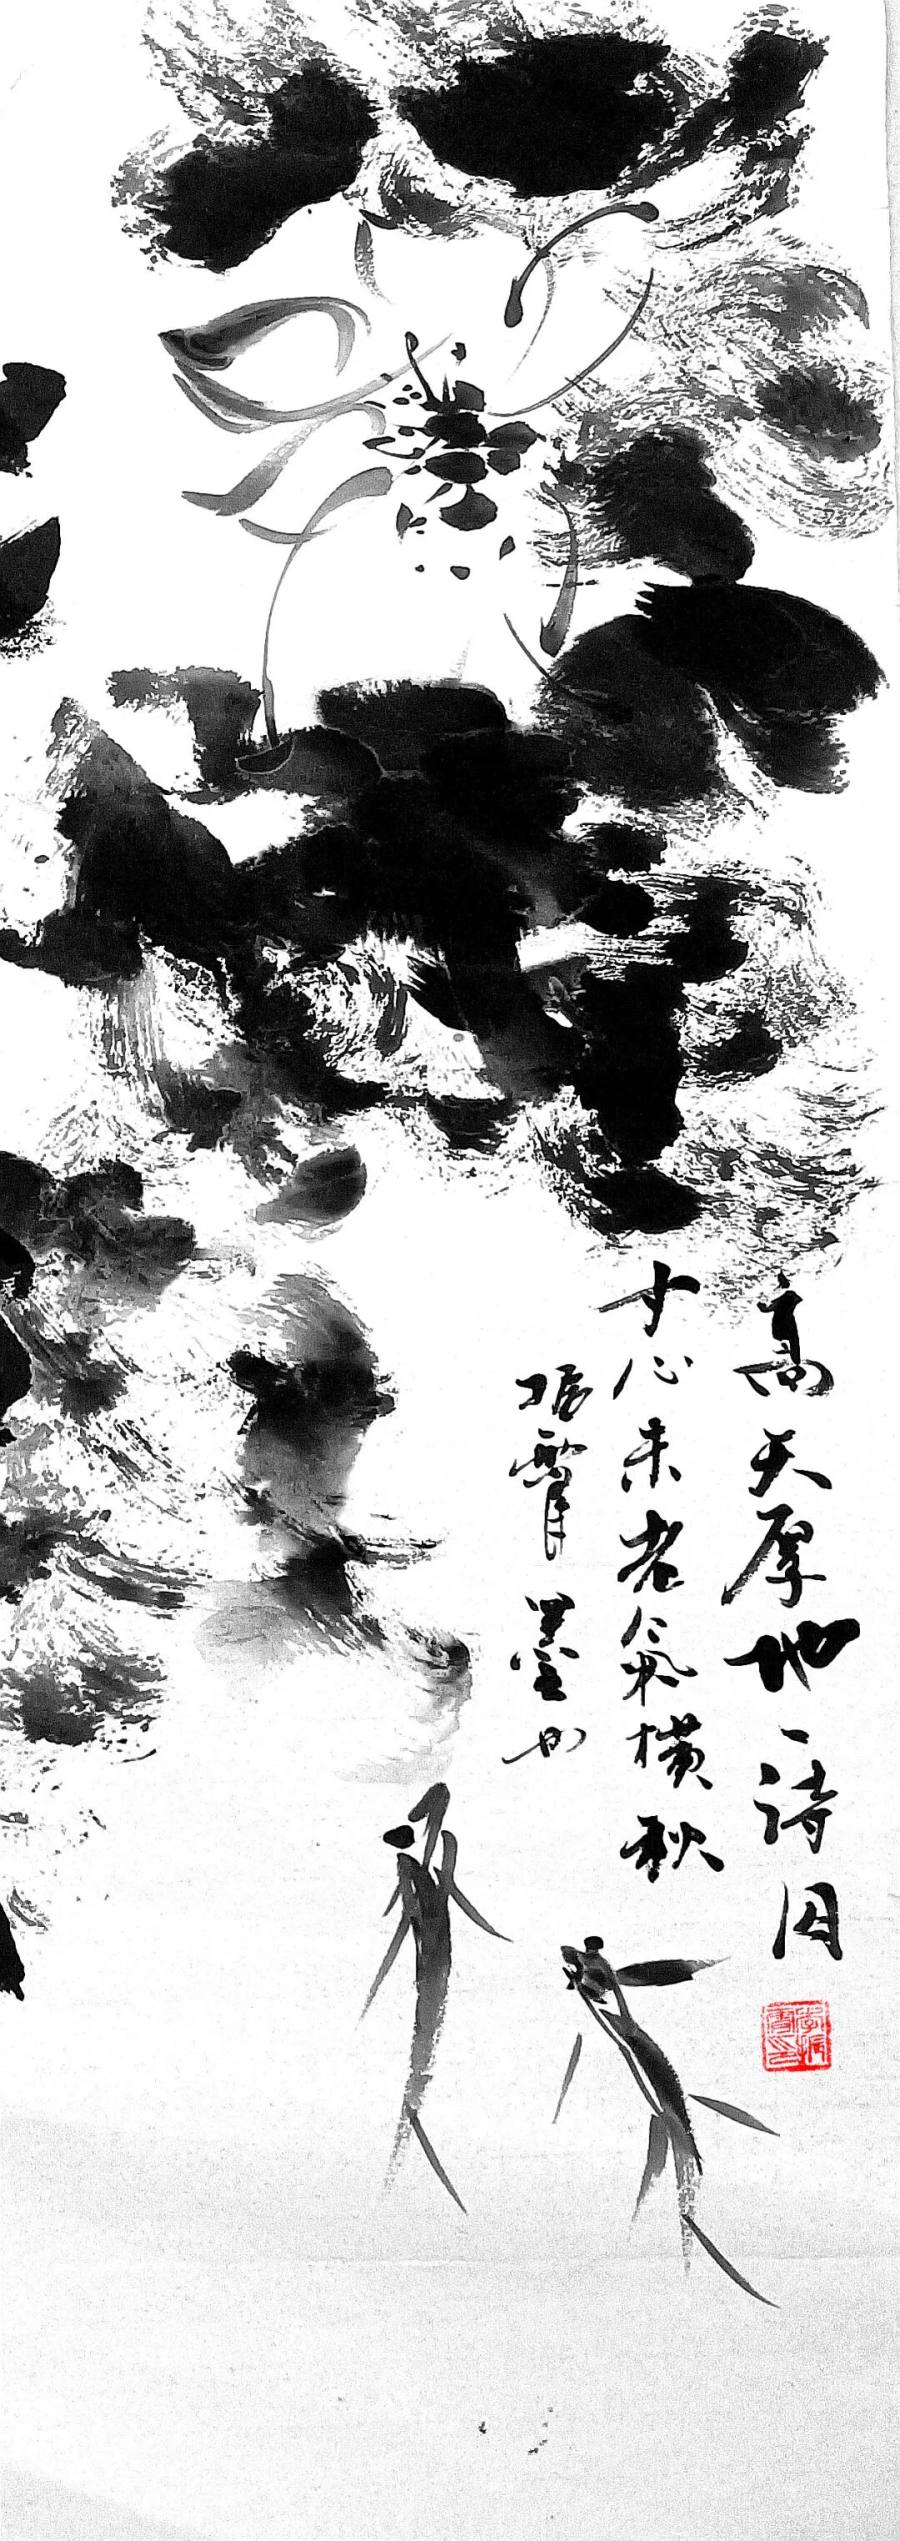 高天厚地一诗囚
寸心未老氣横秋
振霄墨